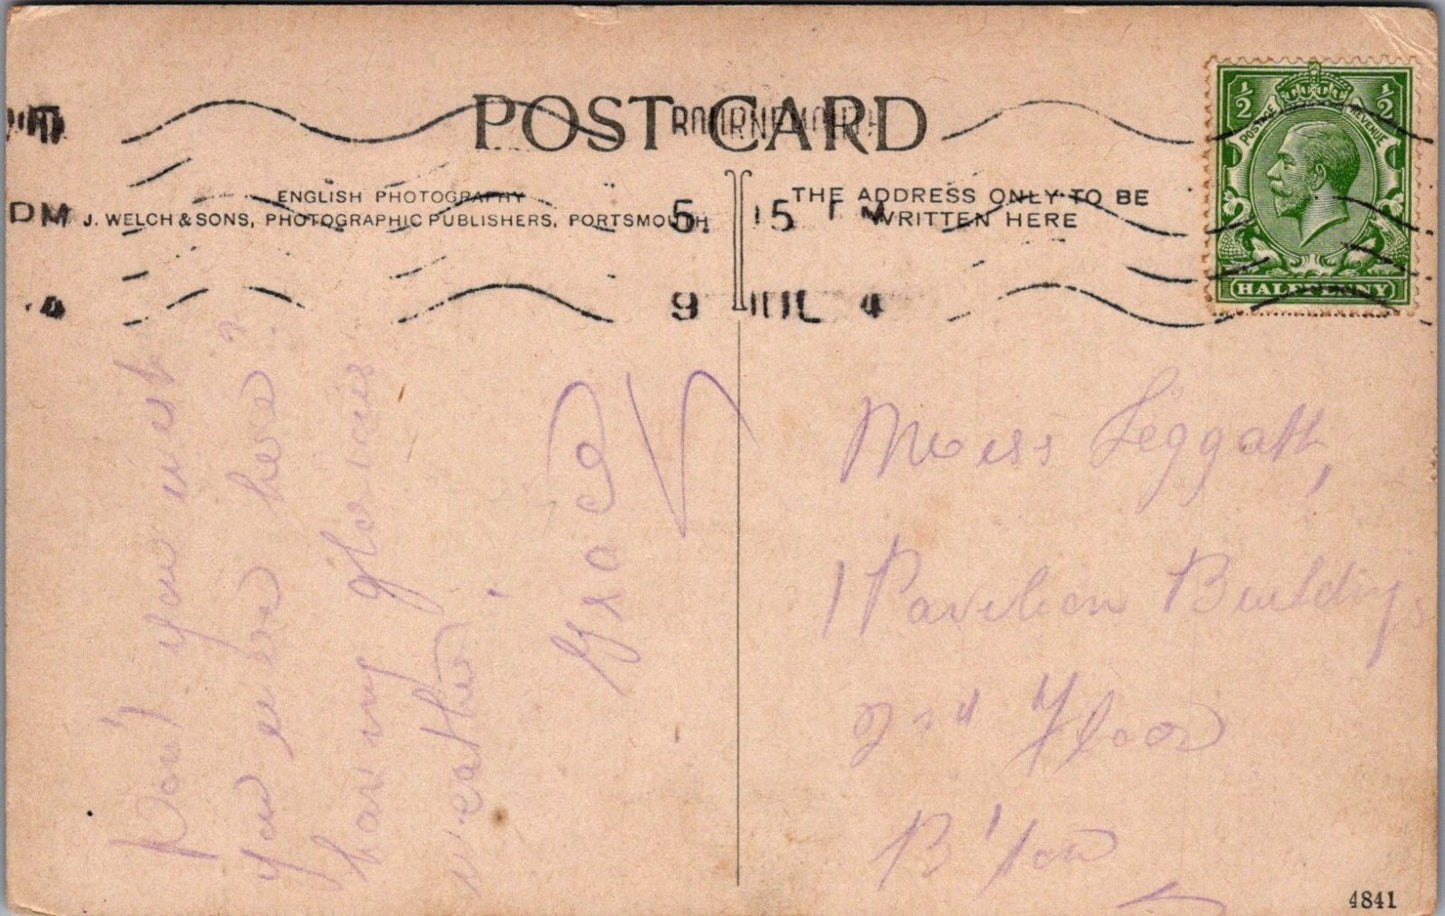 POST CARD
BOURNEMOUTH
ENGLISH PHOTOGRAPHY
J. WELCH & SONS, PHOTOGRAPHIC PUBLISHERS, PORTSMOUTH
THE ADDRESS ONLY TO BE
WRITTEN HERE
PM
5. 15 PM
9 JUL 4
4
½ ½
POSTAGE REVENUE
HALFPENNY
Don't you wish
you were here?
having glorious
weather.
Grace
Miss Leggatt,
1 Pavilion Buildings
2nd Floor
B'ton
4841